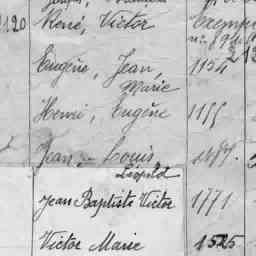 120 René, Victor Exempt
Eugène, Jean, 1154
Marie
Henri, Eugène 1155
Jean - Louis
Léopold
Jean Baptiste Victor 1771
Victor Marie 1525